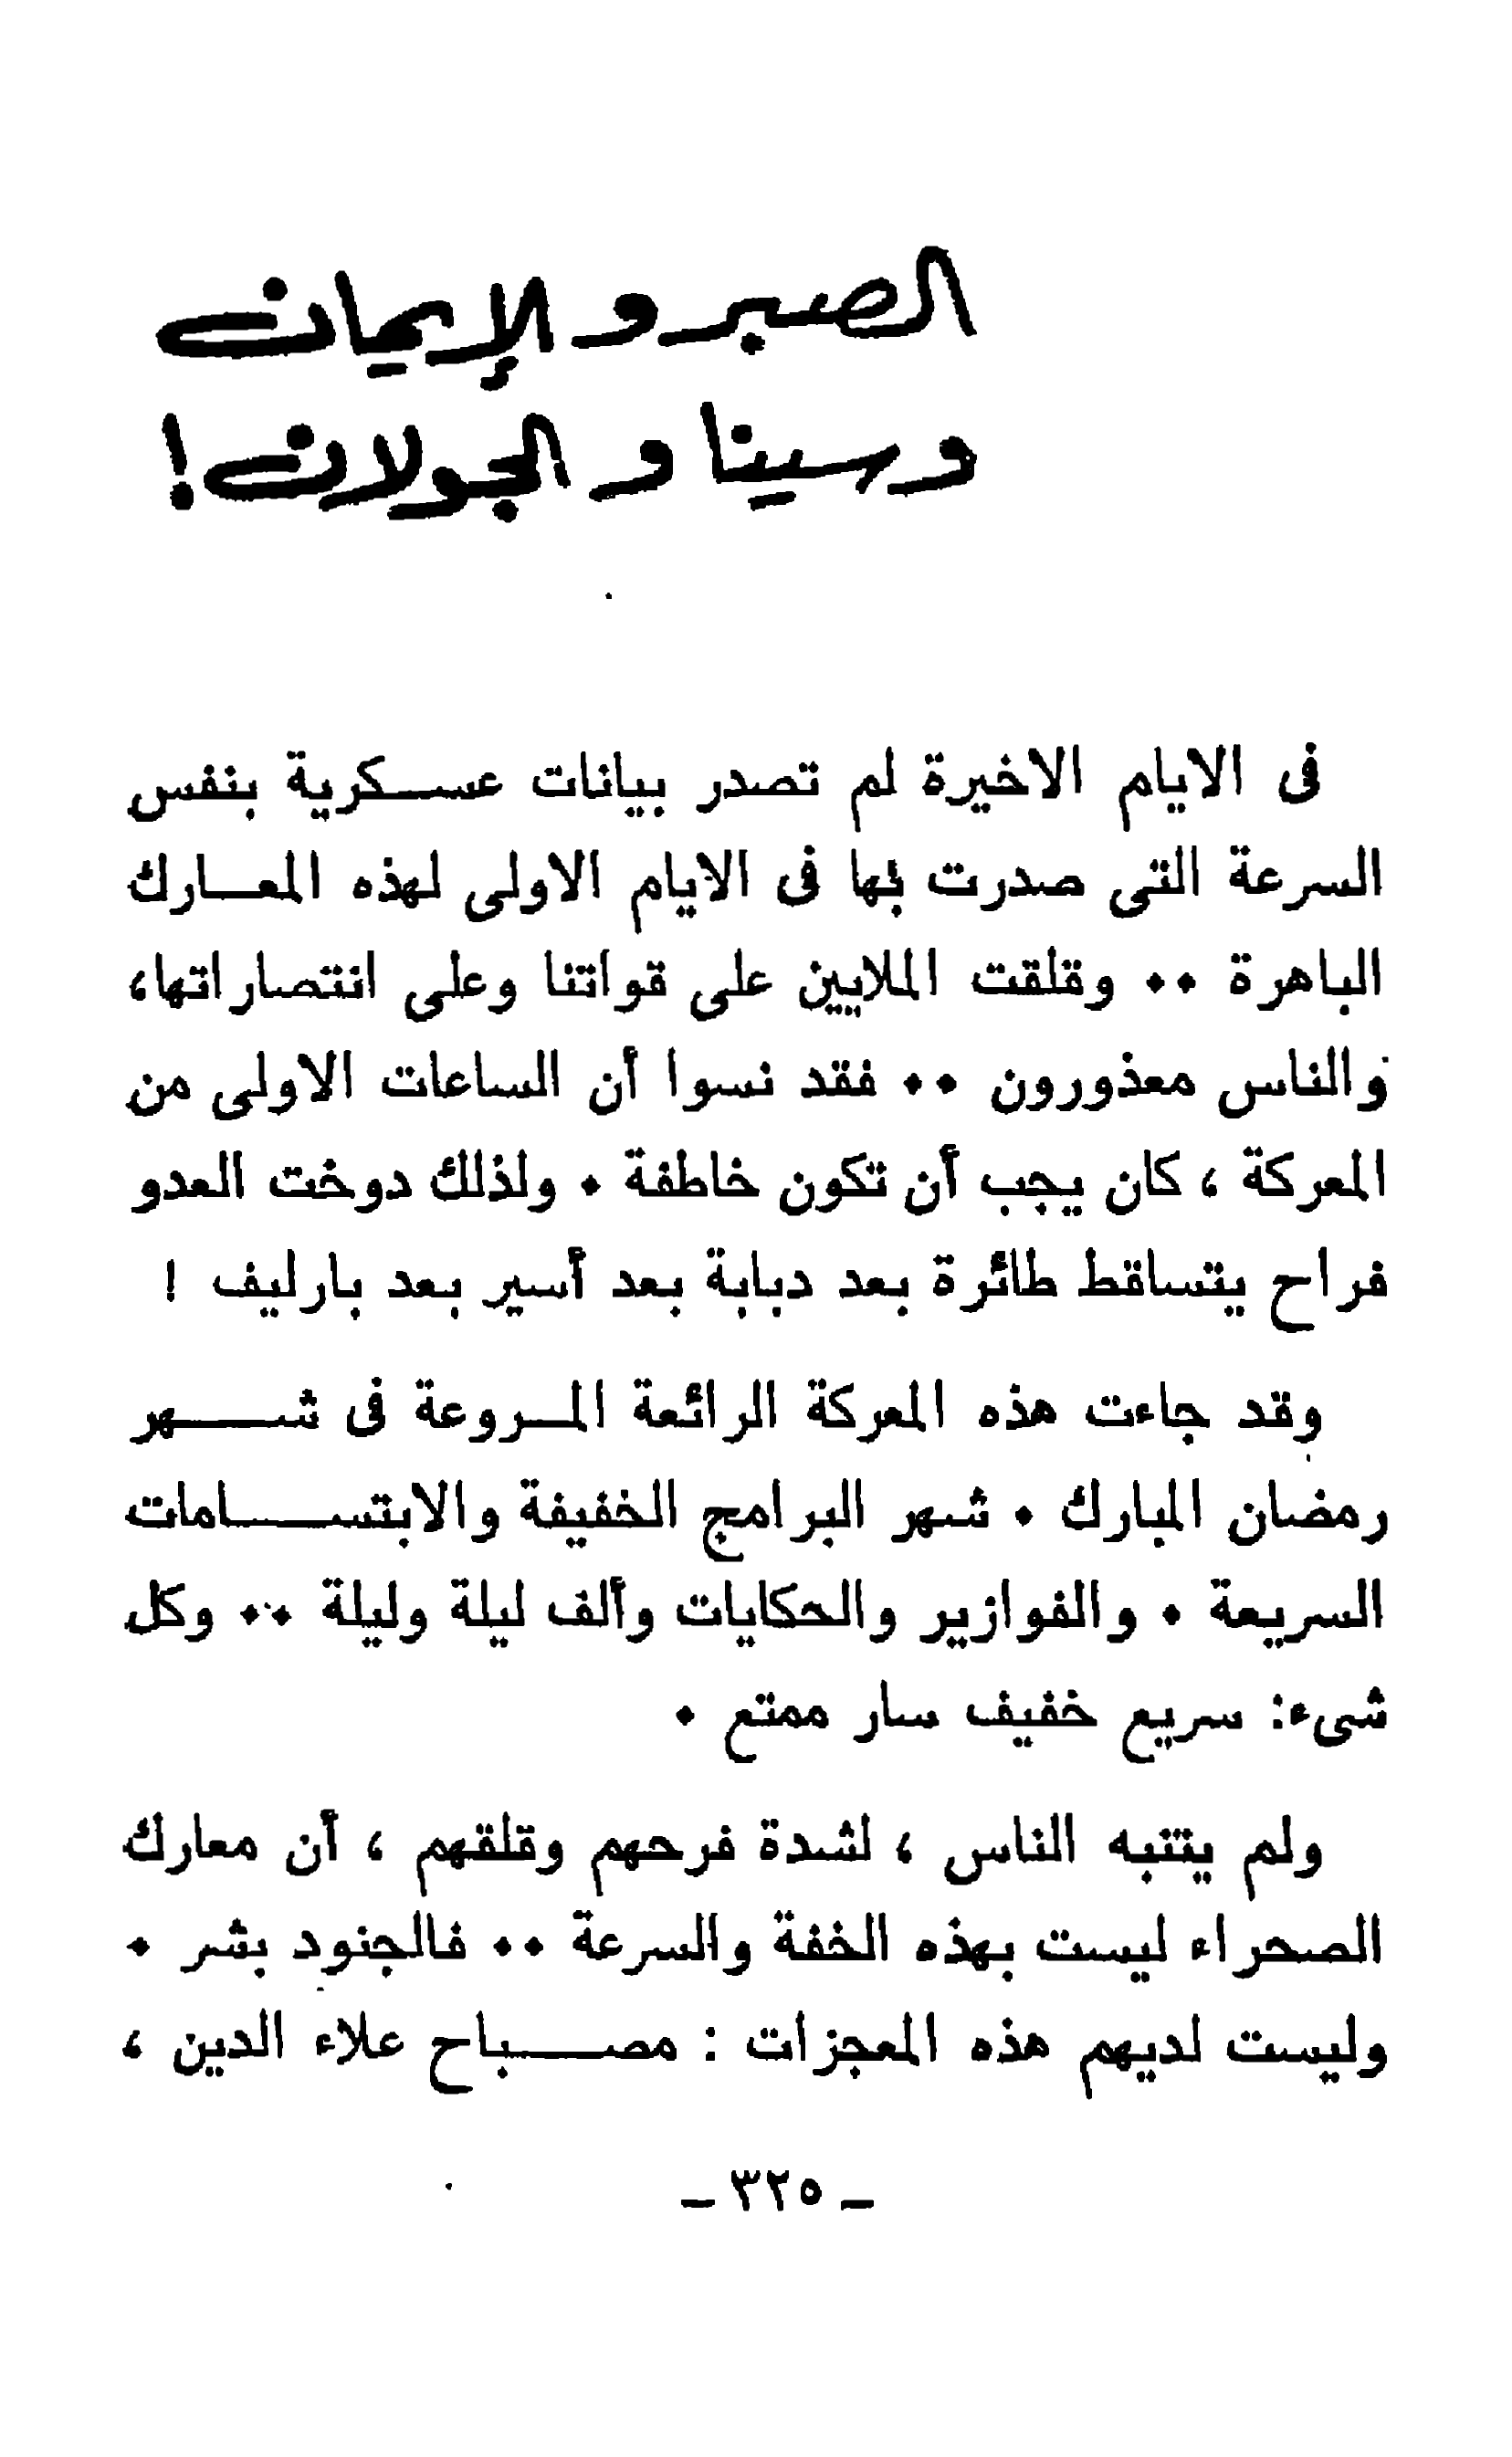 الصبر والإيمان
وسينا والجولان!
فى الايام الاخيرة لم تصدر بيانات عسكرية بنفس
السرعة التى صدرت بها فى الايام الاولى لهذه المعارك
الباهرة ٠٠ وقلقت الملايين على قواتنا وعلى انتصاراتها،
والناس معذورون ٠٠ فقد نسوا أن الساعات الاولى من
المعركة ، كان يجب أن تكون خاطفة ٠ ولذلك دوخت العدو
فراح يتساقط طائرة بعد دبابة بعد أسير بعد بارليف !
وقد جاءت هذه المعركة الرائعة المروعة فى شهر
رمضان المبارك ٠ شهر البرامج الخفيفة والابتسامات
السريعة ٠ والفوازير والحكايات وألف ليلة وليلة ٠٠ وكل
شىء: سريع خفيف سار ممتع ٠
ولم يتنبه الناس ، لشدة فرحهم وقلقهم ، أن معارك
الصحراء ليست بهذه الخفة والسرعة ٠٠ فالجنود بشر ٠
وليست لديهم هذه المعجزات : مصباح علاء الدين ،
– ٣٢٥ –